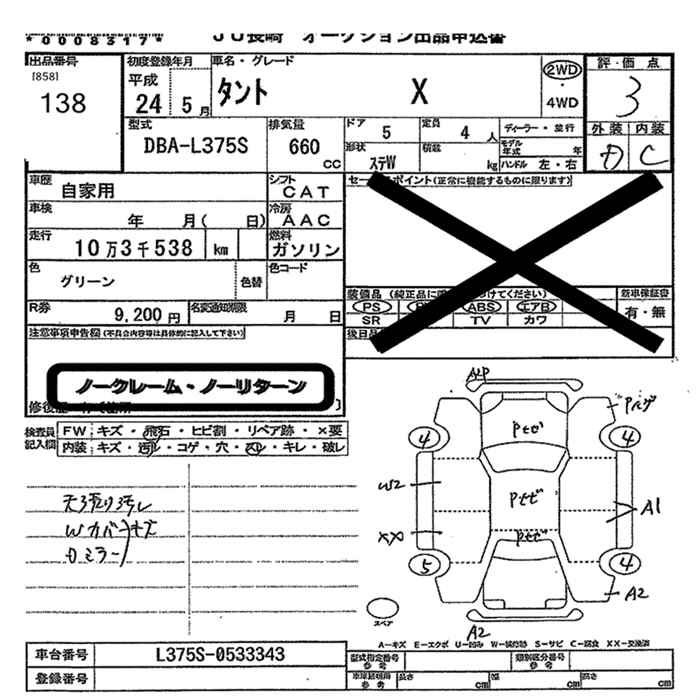 *0008317*
JU長崎 オークション出品申込書
出品番号 初度登録年月 車名・グレード 評価点
[858]
138
平成
24 5月
タント X
2WD
・
4WD
3
型式 排気量 ドア 5 定員 4人 ディーラー・並行 外装 内装
DBA-L375S 660 CC
形状 ステW 積載 kg モデル年式 年
ハンドル 左・右
D C
車歴 自家用 シフト CAT セー ポイント(正常に機能するものに限ります)
車検 年 月( 日) 冷房 AAC
走行 10万3千538 km 燃料 ガソリン
色 グリーン 色替 色コード
装備品 (純正品に けてください) 新車保証書
PS ABS エアB 有・無
SR TV カワ
R券 9,200円 名変通知期限 月 日
後日品
注意事項申告欄(不具合内容等は具体的に記入して下さい)
ノークレーム・ノーリターン
修復歴
検査員記入欄
FW キズ・飛石・ヒビ割・リペア跡・×要
内装 キズ・汚レ・コゲ・穴・スレ・キレ・破レ
天張り汚レ
Wカバーキズ
Dミラー
Pセゼ
4 4
W2
Pセゼ
A1
XX
Pセゼ
5 4
A2
スペア
A2
A-キズ E-エクボ U-凹み W-補修跡 S-サビ C-腐食 XX-交換済
車台番号 L375S-0533343
型式指定番号 参考 類別区分番号 参考
登録番号
車庫証明用 参考 長さ cm 幅 cm 高さ cm